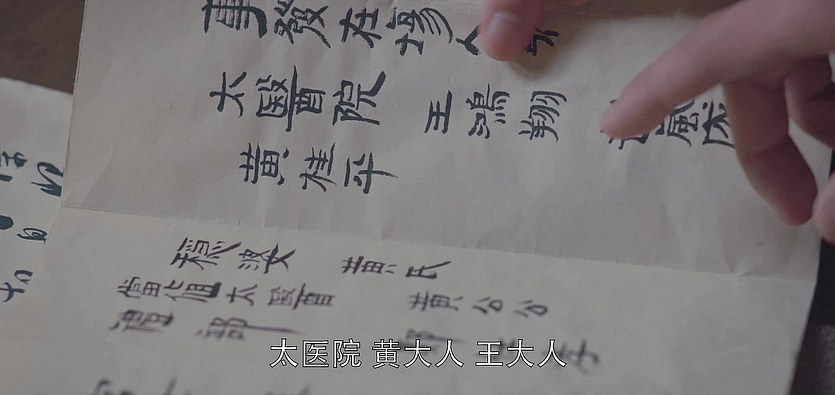 事發在場人
太醫院 王鴻翔
黃桂平
穩婆 黃氏
當值太醫 黃公公
禮部
太医院 黄大人 王大人